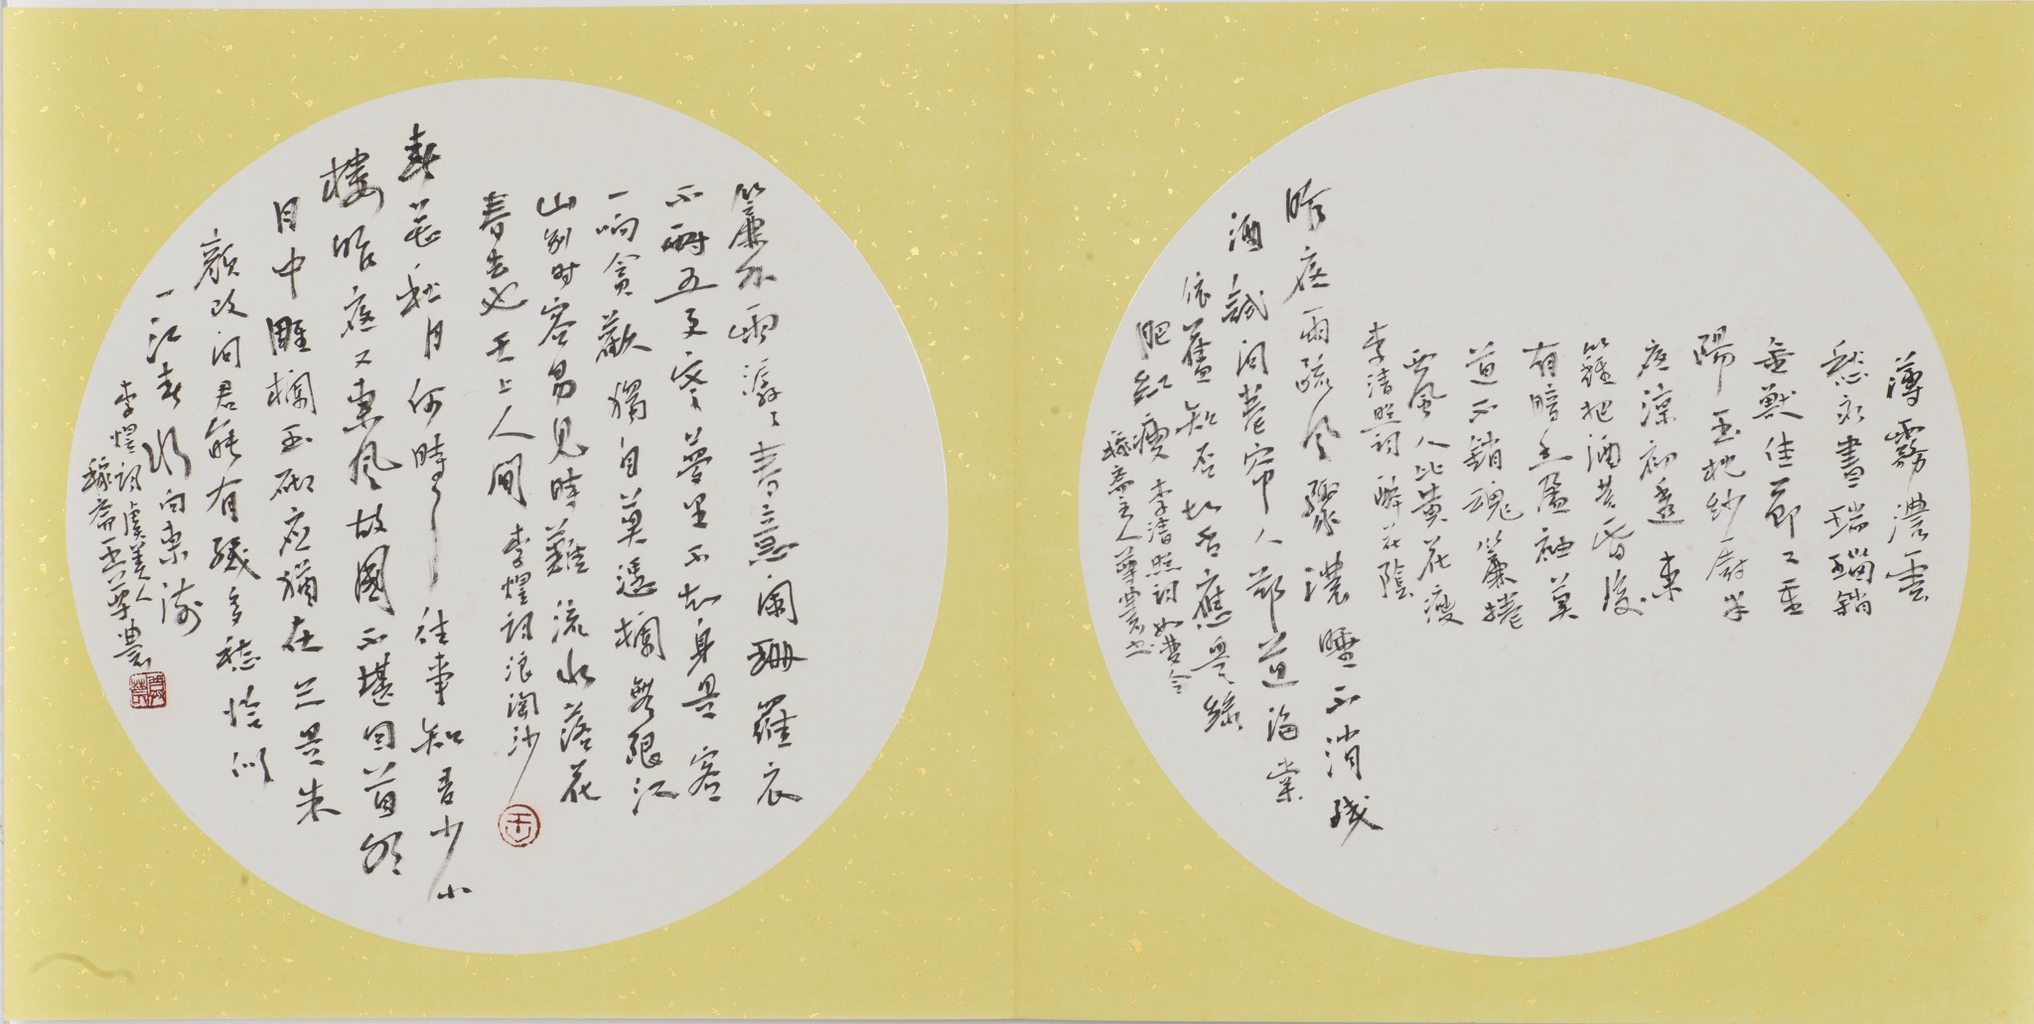 薄霧濃雲
愁永晝瑞腦銷
金獸佳節又重
陽玉枕紗廚半
夜涼初透東
籬把酒黃昏後
有暗香盈袖莫
道不銷魂簾捲
西風人比黃花瘦
李清照詞醉花陰
昨夜雨疏風驟濃睡不消殘
酒試問卷帘人却道海棠
依舊知否知否應是綠
肥紅瘦 李清照詞如夢令
齋主人尊農書
簾外雨潺潺春意闌珊羅衣
不耐五更寒夢里不知身是客
一晌貪歡獨自莫憑欄無限江
山别时容易見時難流水落花
春去也天上人間 李煜詞浪淘沙
春花秋月何時了往事知多少小
樓昨夜又東風故國不堪回首月明
中雕欄玉砌應猶在只是朱
顏改問君能有幾多愁恰似
一江春水向東流
李煜詞虞美人
齋王尊農